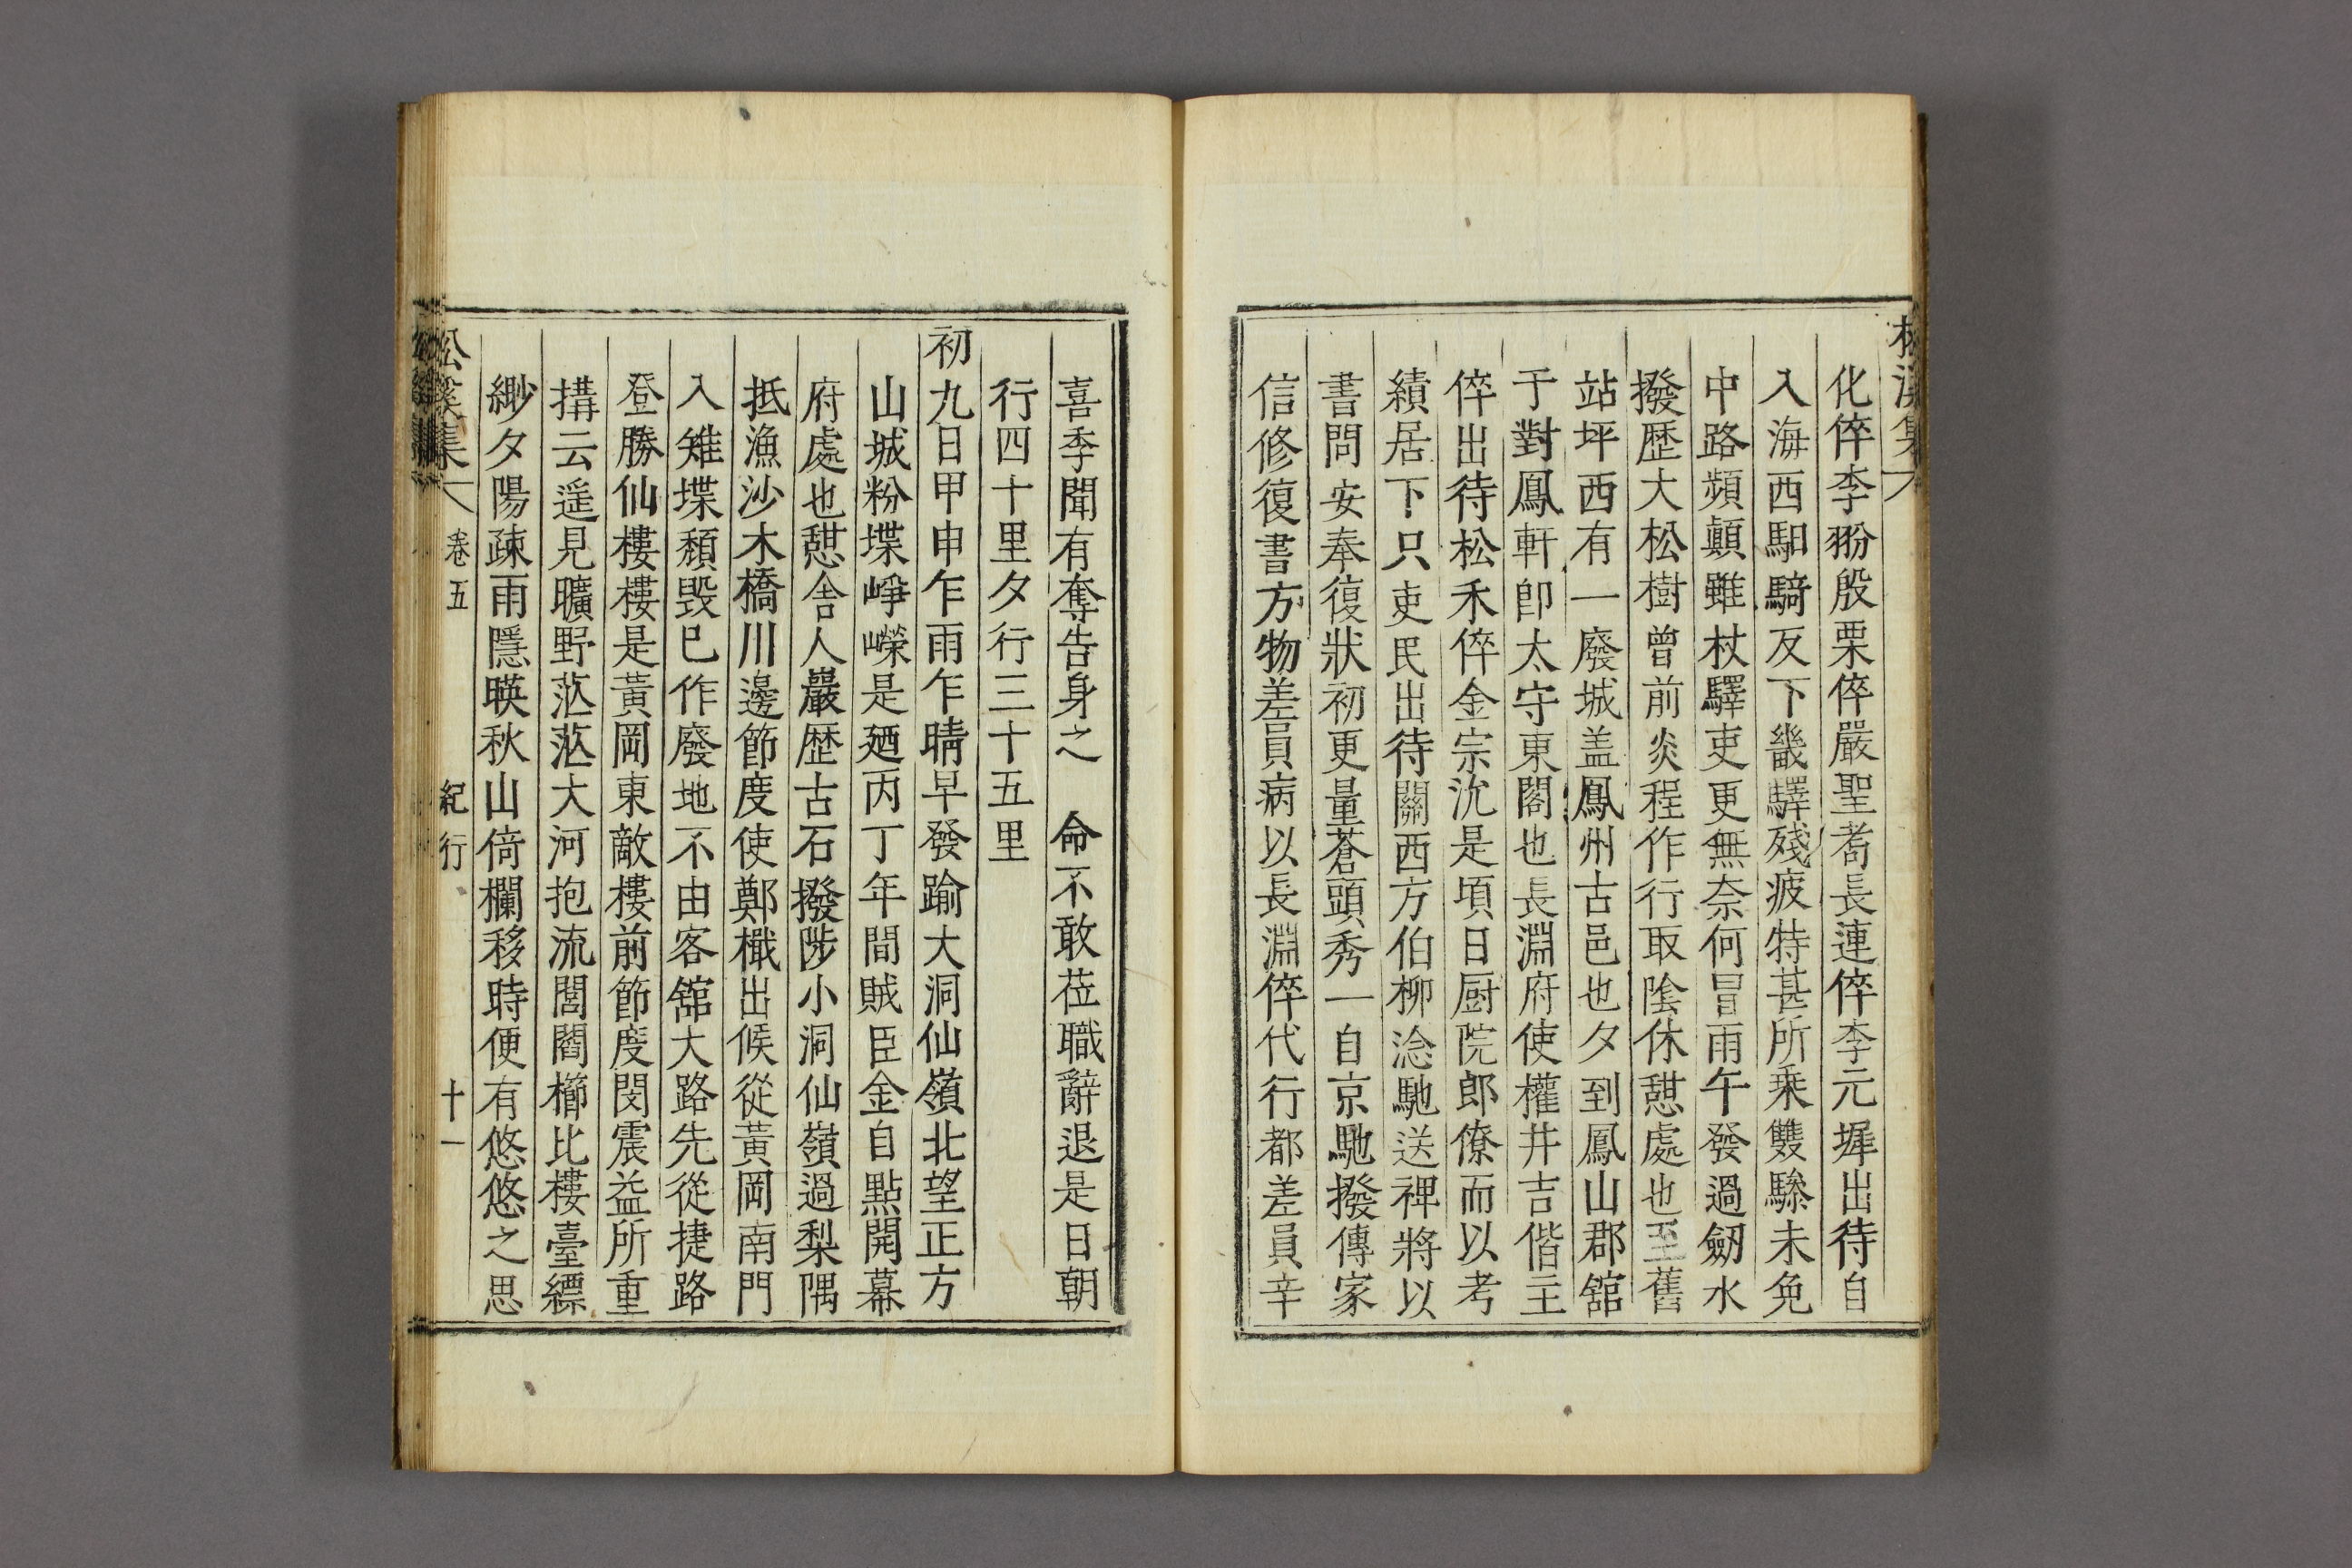 松溪集
化倅李翂殷栗倅嚴聖耈長連倅李元墀出待自
入海西馹騎反下畿驛殘疲特甚所乗雙驂未免
中路頻顚雖杖驛吏更無奈何冒雨午發過劒水
撥歷大松樹曾前炎程作行取陰休憇處也至舊
站坪西有一廢城盖鳳州古邑也夕到鳳山郡舘
于對鳳軒卽太守東閣也長淵府使權井吉偕主
倅出待松禾倅金宗沇是頃日厨院郎僚而以考
績居下只吏民出待關西方伯柳淰馳送禆將以
書問安奉復狀初更量蒼頭秀一自京馳撥傳家
信修復書方物差員病以長淵倅代行都差員辛
喜季聞有奪告身之 命不敢莅職辭退是日朝
行四十里夕行三十五里
初九日甲申乍雨乍晴早發踰大洞仙嶺北望正方
山城粉堞崢嶸是廼丙丁年間賊臣金自點開幕
府處也憇舍人巖歷古石撥陟小洞仙嶺過梨隅
抵漁沙木橋川邊節度使鄭檝出候從黃岡南門
入雉堞頹毁已作廢地不由客舘大路先從捷路
登勝仙樓樓是黃岡東敵樓前節度閔震益所重
搆云遥見曠野茫茫大河抱流閭閻櫛比樓臺縹
緲夕陽疎雨隱暎秋山倚欄移時便有悠悠之思
松溪集 卷五 紀行 十一